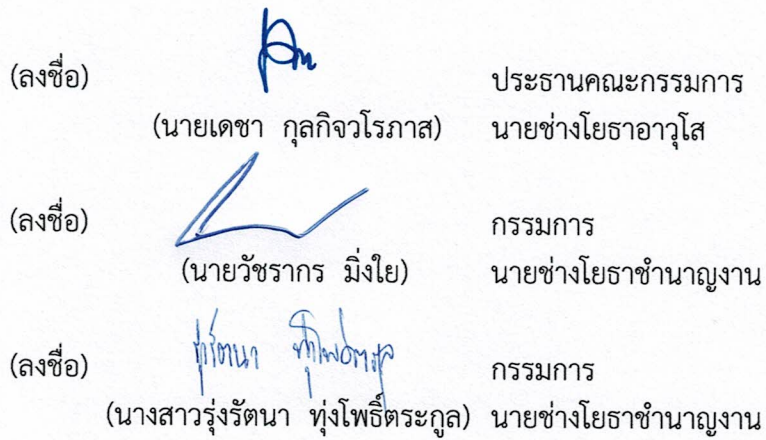 (ลงชื่อ) ประธานคณะกรรมการ
(นายเดชา กุลกิจวโรภาส) นายช่างโยธาอาวุโส
(ลงชื่อ) กรรมการ
(นายวัชรากร มิ่งใย) นายช่างโยธาชำนาญงาน
(ลงชื่อ) รุ่งรัตนา ทุ่งโพธิ์ตระกูล กรรมการ
(นางสาวรุ่งรัตนา ทุ่งโพธิ์ตระกูล) นายช่างโยธาชำนาญงาน